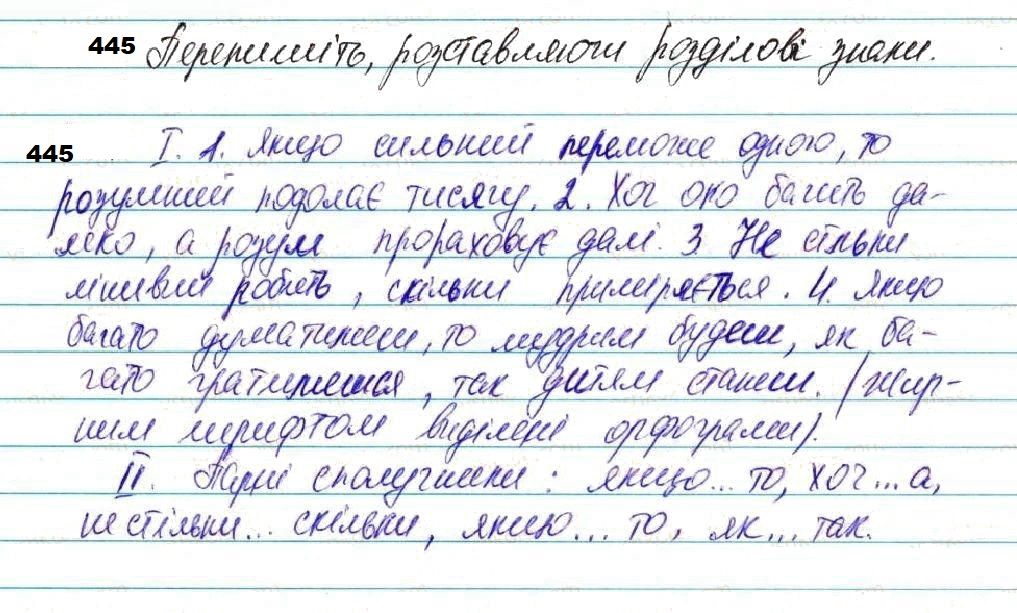 445 Перепишіть, розставляючи розділові знаки.
445 I. 1. Якщо сильний переможе одного, то
розумний подолає тисячу. 2. Хоч око бачить да-
леко, а розум прораховує далі. 3. Не стільки
лінивий робить, скільки приміряється. 4. Якщо
багато думатимеш, то мудрим будеш, як ба-
гато гратимешся, так дитям станеш. (Жир-
ним шрифтом виділені орфограми).
II. Парні сполучники: якщо... то, хоч... а,
не стільки... скільки, якщо... то, як... так.